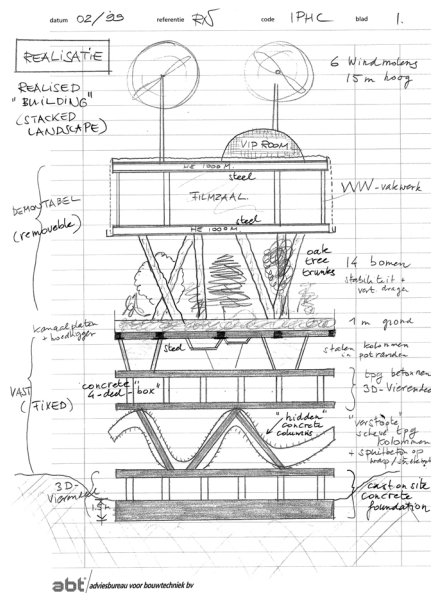 datum 02/'99 referentie RN5 code IPHC blad 1.
REALISATIE
REALISED
"BUILDING"
(STACKED
LANDSCAPE)
6 Windmolens
15 m hoog
VIP ROOM
HE 1000 M.
steel
FILMZAAL.
WW-vakwerk
steel
HE 1000 M
DEMONTABEL
(removeable)
oak
tree
trunks
14 bomen
stabiliteit +
vert. drager
kanaalplaten
+ boedliggers
1 m grond
steel
stalen kolommen
in potranden
concrete
"4-deel-box"
tpg betonnen
3D-Vierendeel
VAST
(FIXED)
"hidden"
concrete
columns
"verstopte"
scheef tpg
kolommen
+ spuitbeton op
3D-
Vierendeel
1.5m
cast on site
concrete
foundation
abt adviesbureau voor bouwtechniek bv